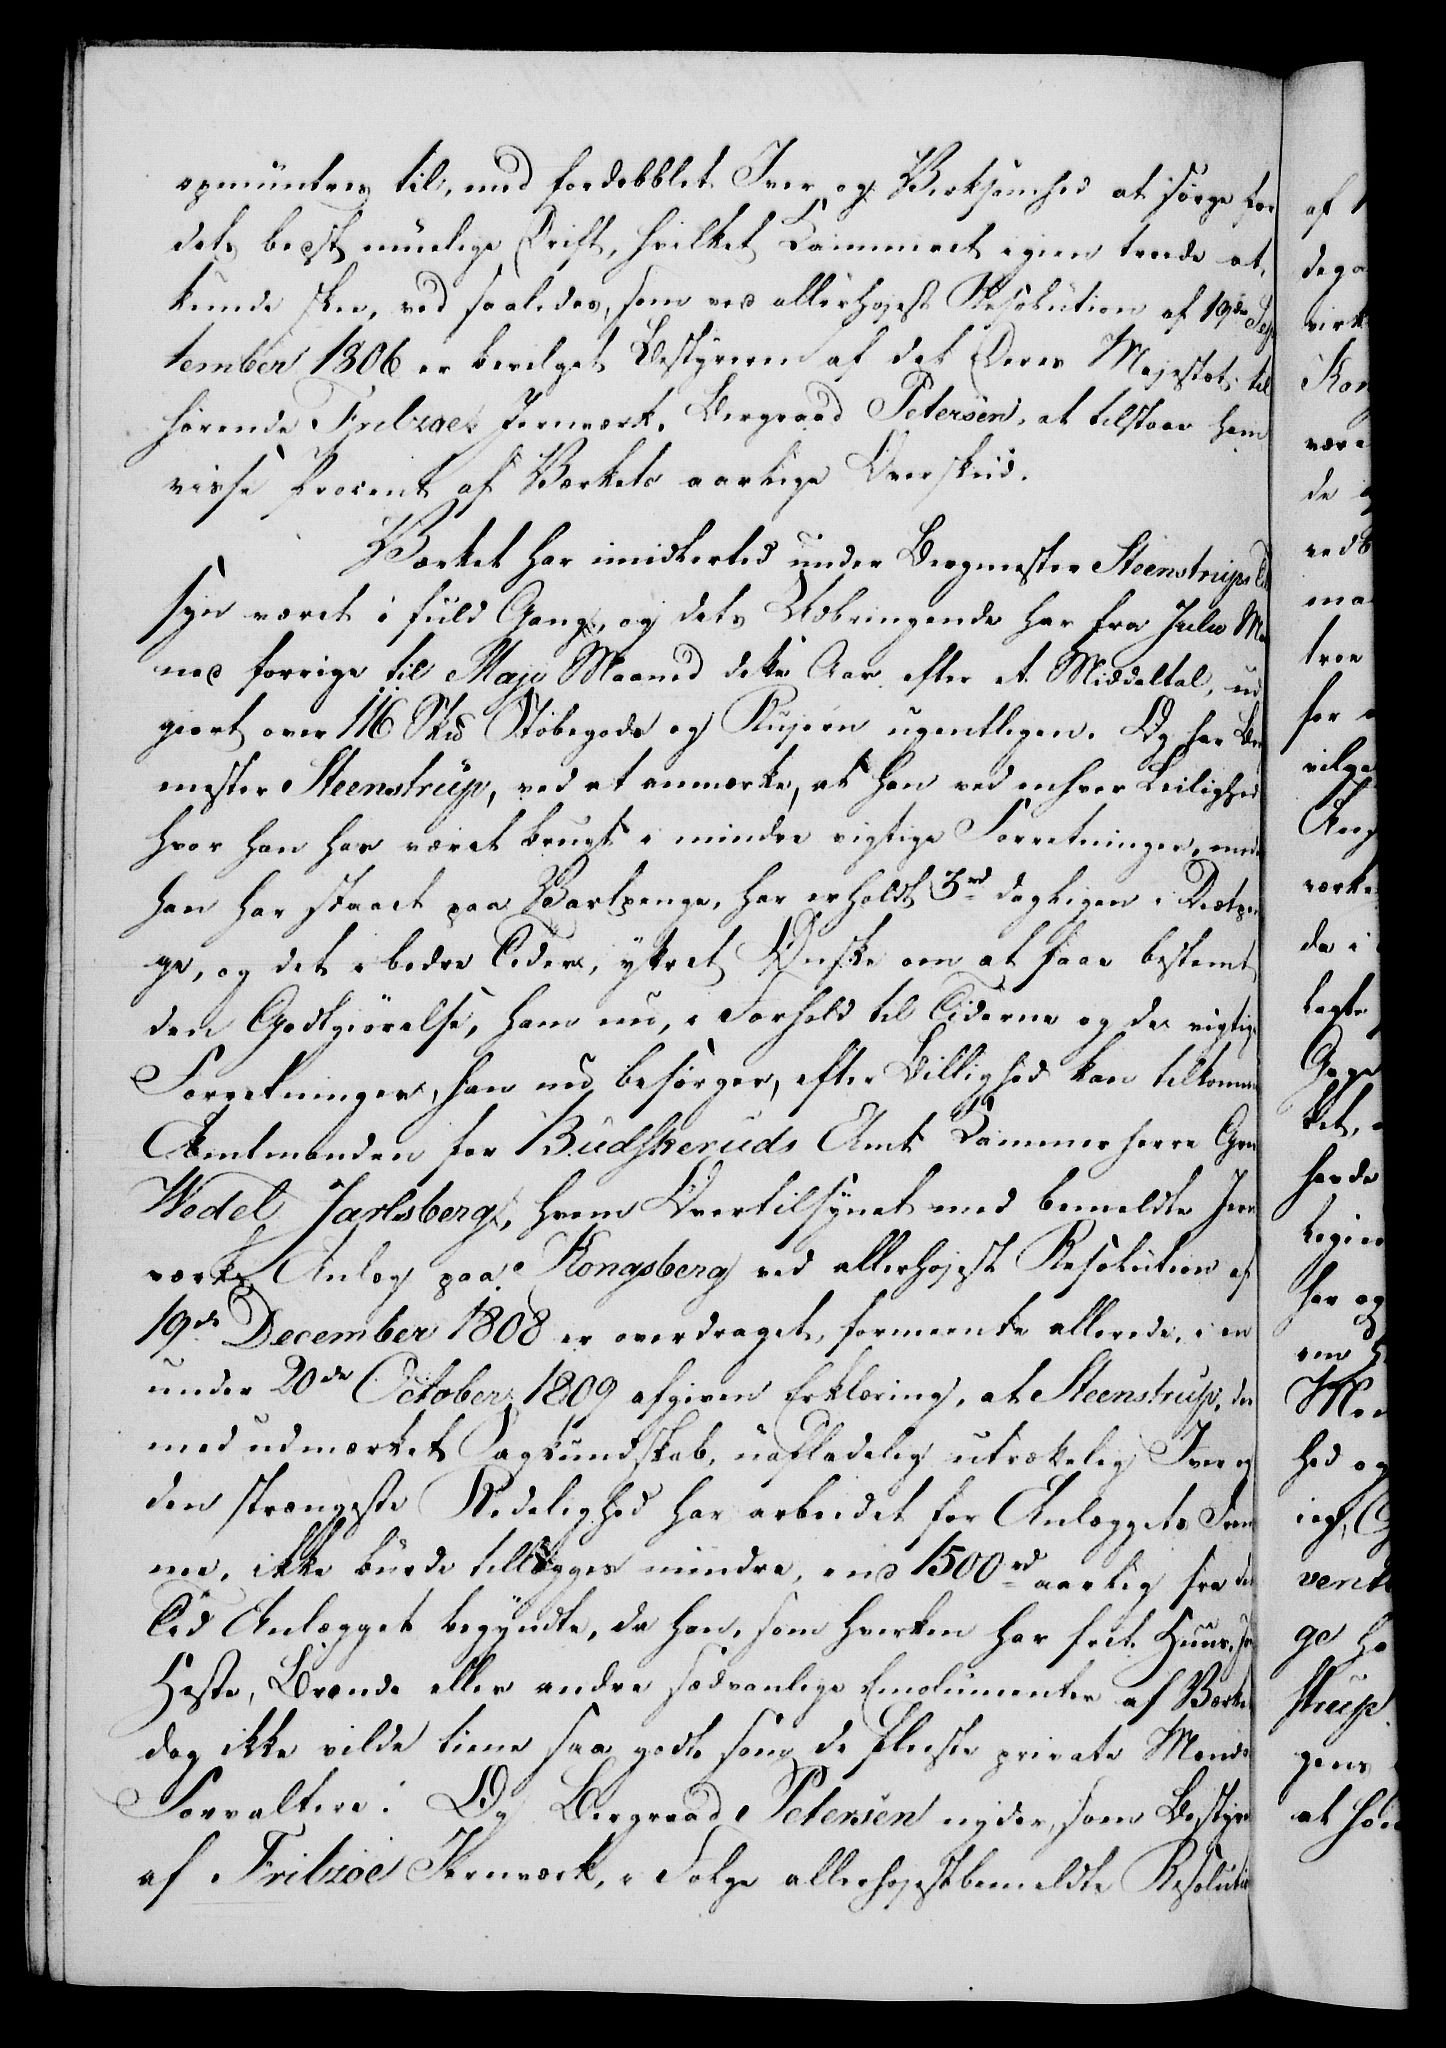 opmuntres til, med fordobblet Iver og Virksomhed at sørge for
dets beqst muelige Drift, hvilket Cammeret igien troede at
kunde skee, ved saaledes, som ved allerhøjest Resolution af 19de Sep
tember 1806 er bevilget Bestyreren af det Deres Majestæt til
hørende Fritzøe Jernværk, Bergraad Petersen, at tilstaae ham
visse Procent af Værkets aarlige Overskud.
Værket har imidlertid under Bergmester Steenstrups Til
syn været i fuld Gang, og dets Udbringende har fra Julii Maa
ned forrige til Maji Maaned dette Aar efter et Middeltal, ud
giort over 116 Skd Støbegods og Rujern ugentligen. Og har Berg
mester Steenstrup, ved at anmærke, at han ved enhver Leilighed
hvor han har været brugt i mindre vigtige Forretninger, mens
han har staaet paa Vartpenge, har erholdt 3rd dagligen i Diætpen
ge, og det i bedre Tider, yttret Ønske om at faae bestemt
den Godtgiørelse, ham nu, i Forhold til Tiderne og de vigtige
Forretninger, han nu besørger, efter Billighed kan tilkomme
Amtmanden for Budskeruds Amt Cammerherre Greve
Wedel Jarlsberg, hvem Overtilsynet med bemeldte Jern
værks Anlæg paa Kongsberg ved allerhøjest Resolution af
19de December 1808 er overdraget, formeente allerede, i en
under 20de October 1809 afgiven Erklæring, at Steenstrup, der
med udmærket Sagkundskab, uafladelig utrættelig Iver og
den strængeste Redelighed har arbeidet for Anlæggets Frem
me, ikke burde tillægges mindre, end 1500rd aarlig fra den
Tid Anlægget begyndte, da han, som hverken har friet Huus,
Heste, Brænde eller andre sædvanlige Emolumenter af Værket
dog ikke vilde tiene saa godt som de fleeste private Mænds
Forvaltere. Og Bergraad Petersen nyder, som Bestyrer
af Fritzöe Jernværk, i Følge allerhøjestbemeldte Resolution